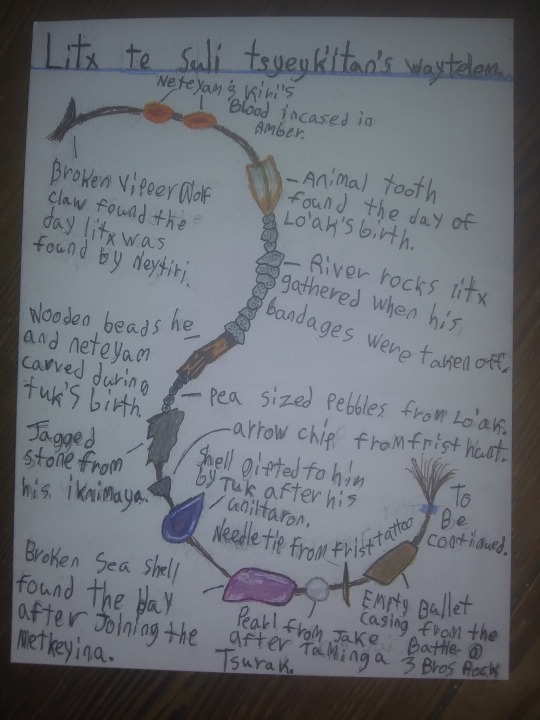 Litx te Suli tsyeyk'itan's waytelem.
Neteyam & Kiri's
Blood incased in
Amber.
Broken Viperwolf
claw found the
day litx was
found by Neytiri.
Animal tooth
found the day of
Lo'ak's birth.
River rocks litx
gathered when his
bandages were taken off.
Wooden beads he
and neteyam
carved during
tuk's birth
pea sized pebbles from Lo'ak.
Jagged
stone from
his iknimaya.
arrow chip from frist hunt.
Shell gifted to him
by Tuk after his
uniltaron.
Needle tip from frist tattoo
To
Be
continued.
Broken Sea shell
found the day
after Joining the
Metkeyina.
Pearl from Jake
after Taming a
Tsurak.
Empty Bullet
Casing from the
Battle @
3 Bros Rock